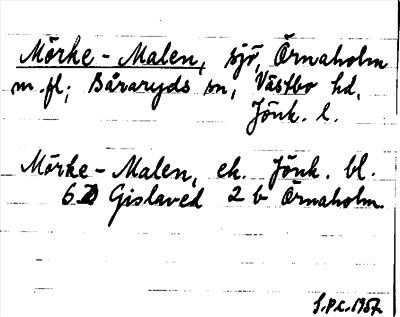 Mörke-Malen, sjö, Örnaholm
m.fl; Båraryds sn, Västbo hd,
Jönk. l.
Mörke-Malen, ek. Jönk. bl.
6 D Gislaved 2 b Örnaholm.
S.P.C. 1957.